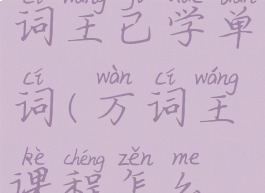 词王已学单
cí wàn cí wáng
词(万词王
kè chéng zěn me
课程怎么